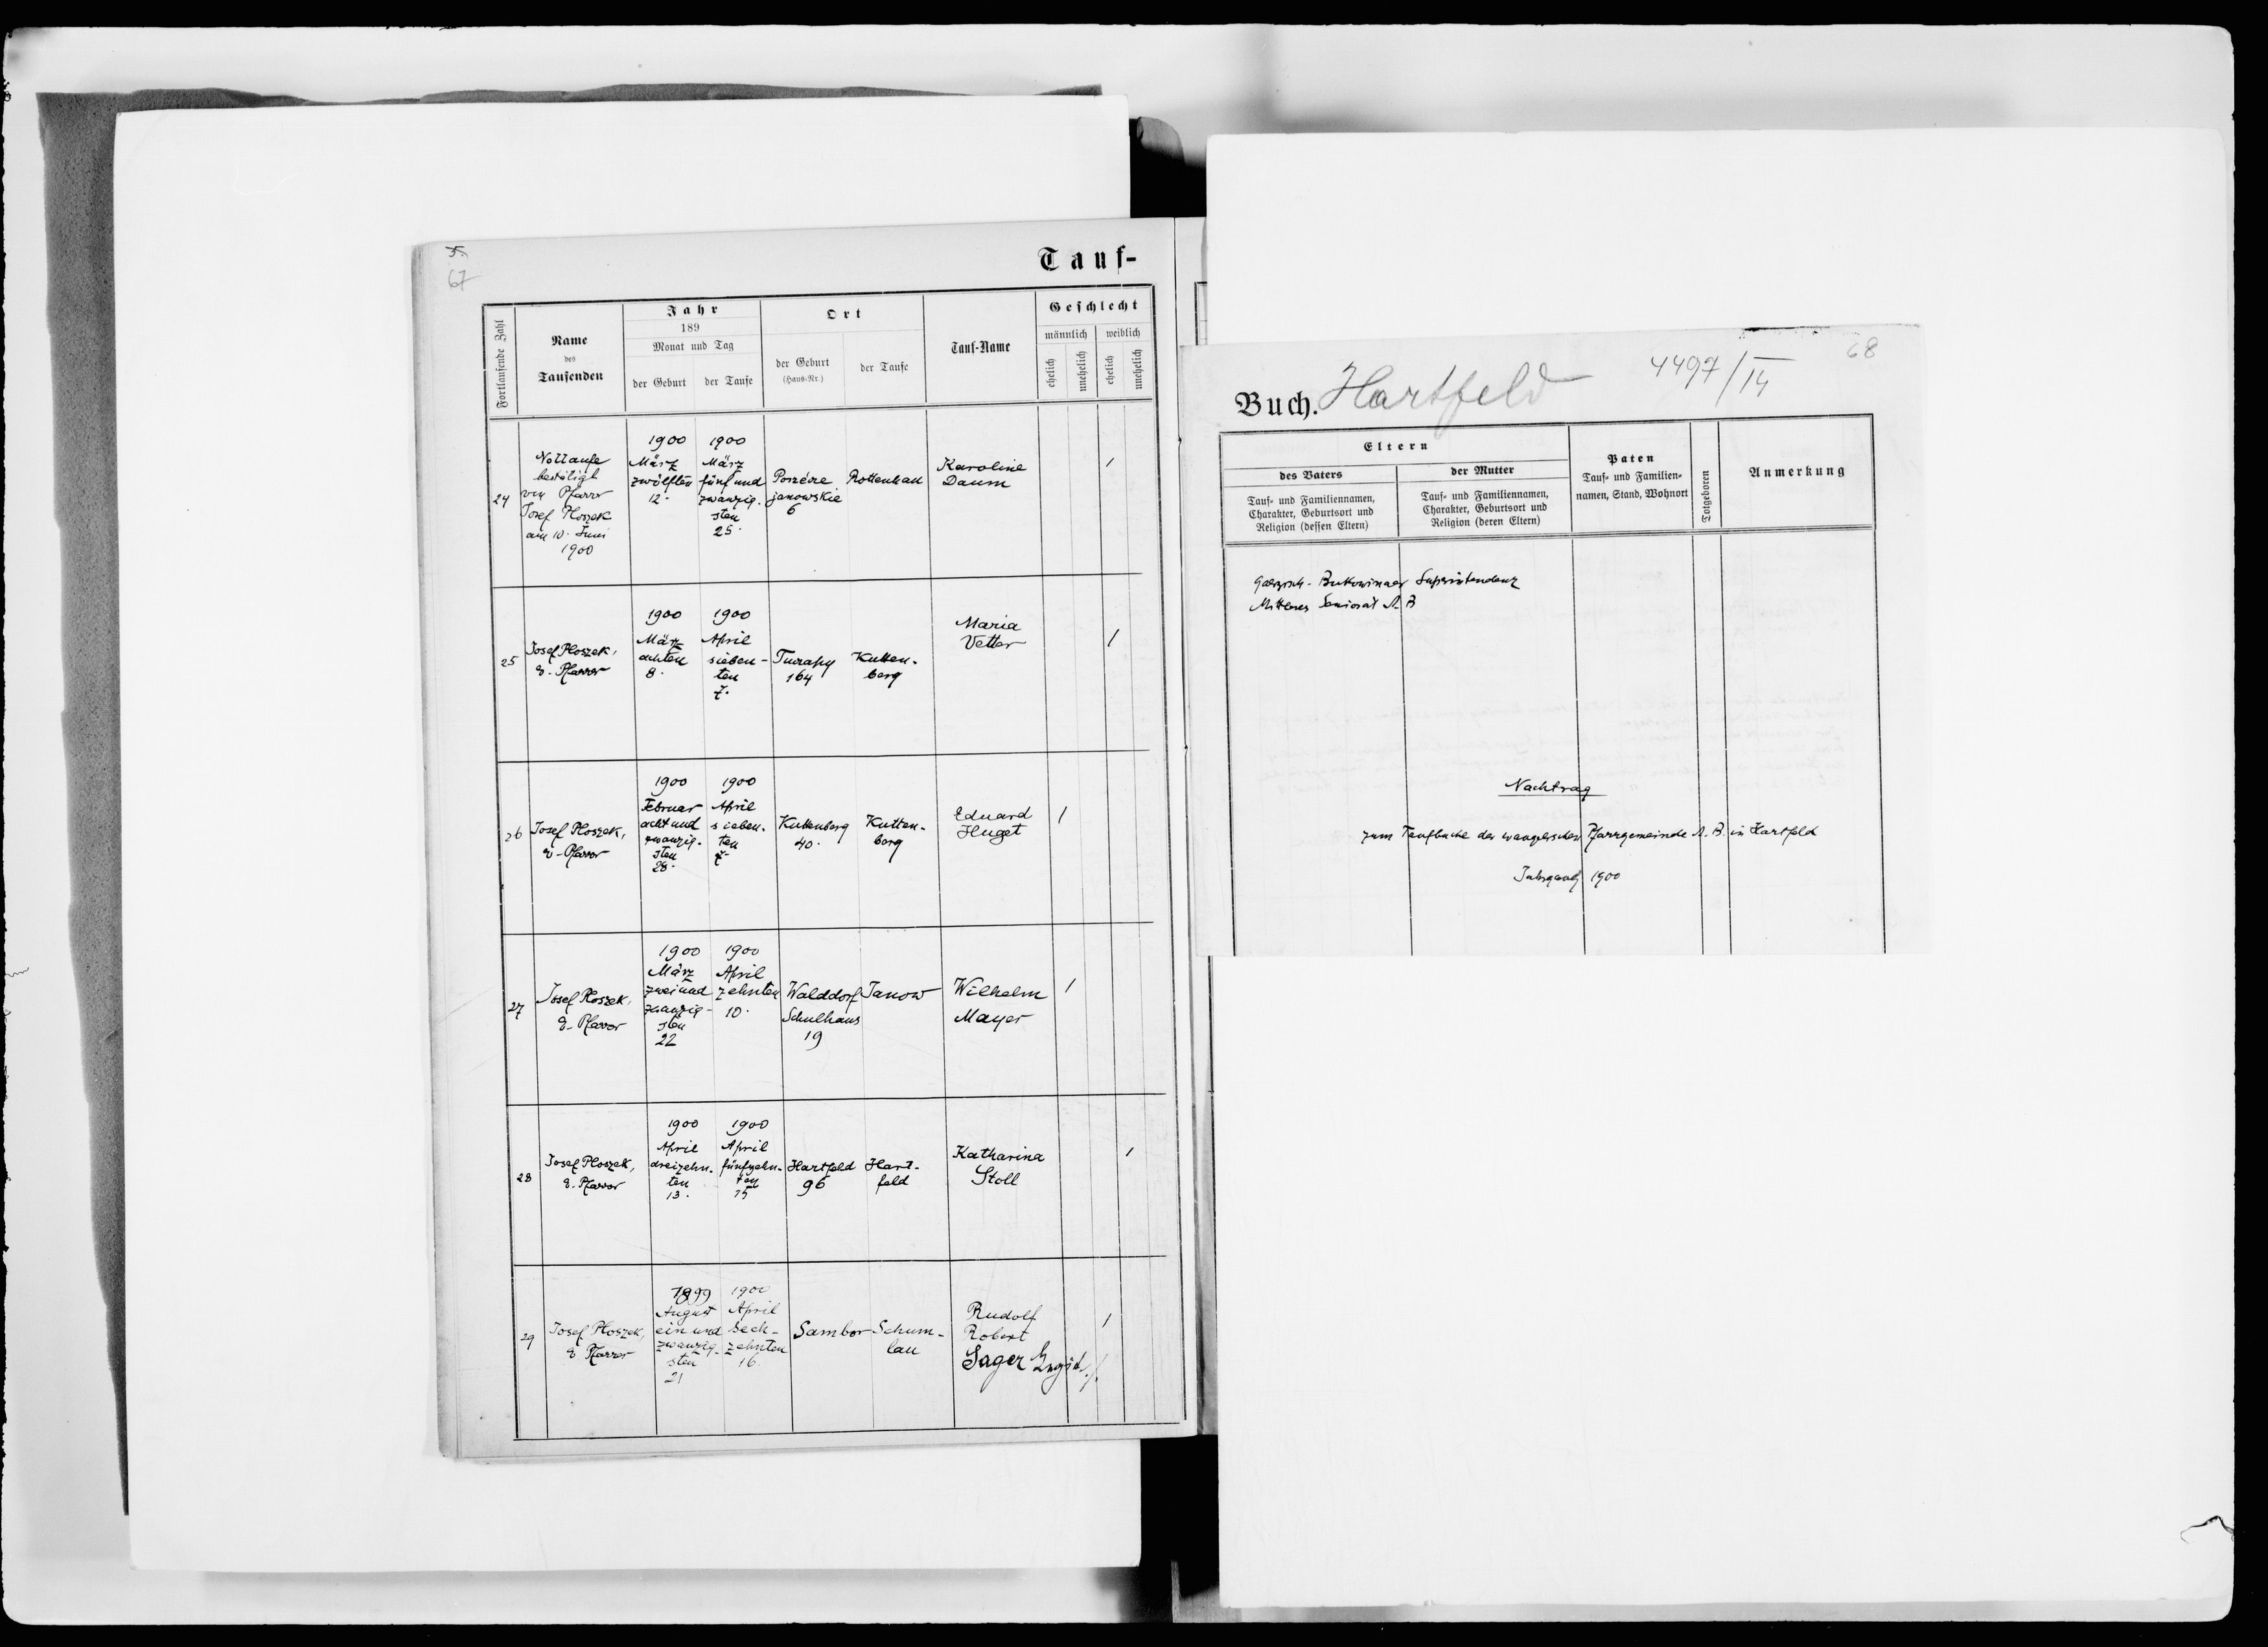 67
Tauf-
Fortlaufende Zahl
Name
des
Taufenden
Jahr
189
Monat und Tag
der Geburt
der Taufe
Ort
der Geburt
(Haus-Nr.)
der Taufe
Tauf-Name
Geschlecht
männlich
weiblich
ehelich
unehelich
ehelich
unehelich
24
Nottaufe
bestätigt
von Pfarrer
Josef Ploszek
am 10. Juni
1900
1900
März
zwölften
12.
1900
März
fünf und
zwanzig-
sten
25.
janowskie
6
Rottenhan
Karoline
Daum
/
25
Josef Ploszek,
e. Pfarrer
1900
März
achten
8.
1900
April
sieben-
ten
7.
164
Kutten-
berg
Maria
Vetter
/
26
Josef Ploszek,
e. Pfarrer
1900
Februar
acht und
zwanzig-
sten
28.
1900
April
sieben-
ten
7.
Kuttenberg
40.
Kutten-
berg
Eduard
Huget
/
27
Josef Ploszek,
e. Pfarrer
1900
März
zwei und
zwanzig-
sten
22
1900
April
zehnten
10.
Walddorf
Schulhaus
19
Janow
Wilhelm
Mayer
/
28
Josef Ploszek,
e. Pfarrer
1900
April
dreizehn-
ten
13.
1900
April
fünfzehn-
ten
15
Hartfeld
96
Hart-
feld
Katharina
Stoll
/
29
Josef Ploszek,
e. Pfarrer
1899
August
ein und
zwanzig-
sten
21
1900
April
sech-
zehnten
16.
Sambor
Schum-
lau
Rudolf
Robert
Sager
/
68
Buch. Hartfeld
4497/14
Eltern
des Vaters
Tauf- und Familiennamen,
Charakter, Geburtsort und
Religion (dessen Eltern)
der Mutter
Tauf- und Familiennamen,
Charakter, Geburtsort und
Religion (deren Eltern)
Paten
Tauf- und Familien-
namen, Stand, Wohnort
Totgeboren
Anmerkung
Bukowinaer Superintendenz
Mittleres Seniorat A. B
Nachtrag
zum Taufbuche der evangelischen Pfarrgemeinde A. B. in Hartfeld
Jahrgang 1900